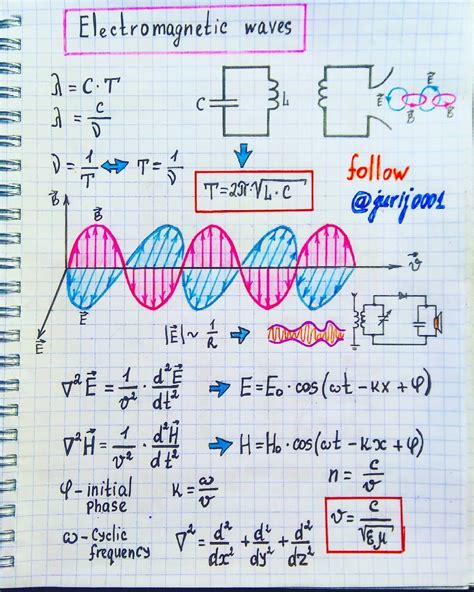 Electromagnetic waves
λ = C · T
λ = C/ν
ν = 1/T ⇔ T = 1/ν
C L
E⃗ B⃗ E⃗ B⃗
T = 2π√L · C
follow
@jurij0001
B⃗
B⃗
E⃗
E⃗
v⃗
|E⃗| ~ 1/R
∇²E⃗ = 1/v² · d²E⃗/dt² ⇒ E = E₀ · cos(ωt - кx + φ)
∇²H⃗ = 1/v² · d²H⃗/dt² ⇒ H = H₀ · cos(ωt - кx + φ)
φ - initial phase
к = ω/v
n = c/v
ω - cyclic frequency
∇² = d²/dx² + d²/dy² + d²/dz²
v = c/√εμ